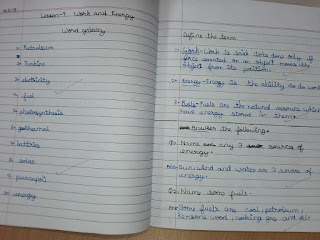 Lesson-9 Work and Energy
Word galaxy
1) Petroleum
2) Turbine
3) electricity
4) fuel
5) photosynthesis
6) geothermal
7) batteries
8) solar
9)
10) energy
Define the term
1) Work- Work is said to be done only if
force exerted on an object moves the
object from its position.
2) Energy- Energy is the ability to do work
3) Fuels- Fuels are the natural sources which
have energy stored in them.
Answer the following.
Q1. Name any 3 sources of
energy.
Ans- Sun, wind and water are 3 source of
energy.
Q2. Name some fuels.
Ans- Some fuels are coal, petroleum,
kerosene wood, cooking gas and oil.